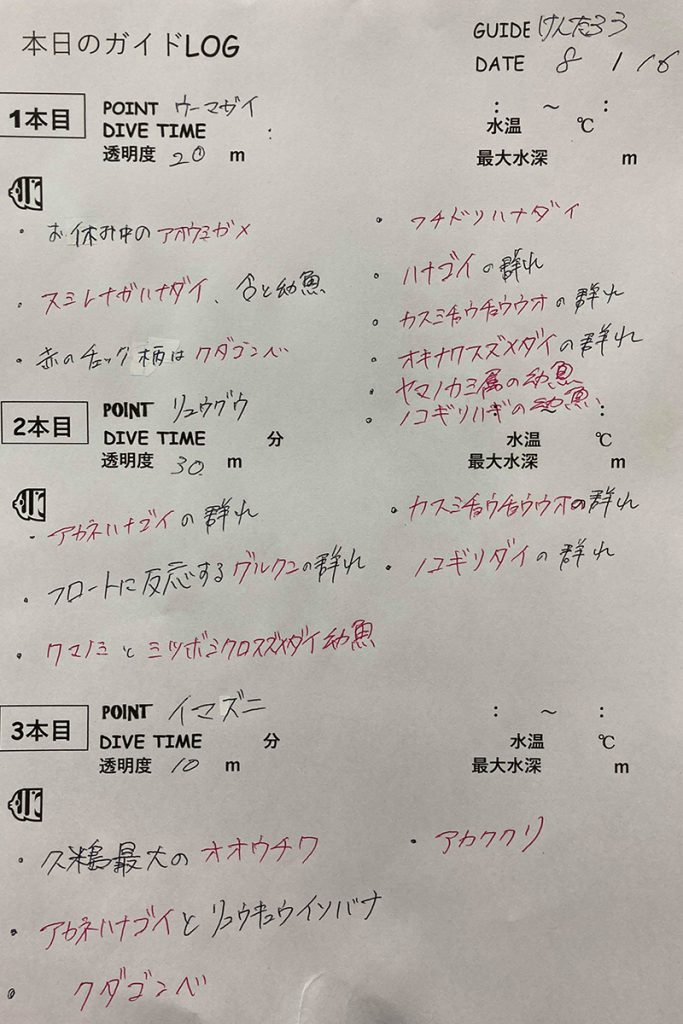 本日のガイドLOG
GUIDE けんたろう
DATE 8 / 16
1本目
POINT ウーマガイ
: ～ :
DIVE TIME :
水温 ℃
透明度 20 m
最大水深 m
・お休み中のアオウミガメ
・スミレナガハナダイ、♂と幼魚
・赤のチェック柄はクダゴンベ
・フチドリハナダイ
・ハナゴイの群れ
・カスミチョウチョウウオの群れ
・オキナワスズメダイの群れ
・ヤマノカミ属の幼魚
・ノコギリハギの幼魚
2本目
POINT リュウグウ
:
DIVE TIME 分
水温 ℃
透明度 30 m
最大水深 m
・アカネハナゴイの群れ
・フロートに反応するグルクンの群れ
・クマノミとミツボシクロスズメダイ幼魚
・カスミチョウチョウウオの群れ
・ノコギリダイの群れ
3本目
POINT イマズニ
: ～ :
DIVE TIME 分
水温 ℃
透明度 10 m
最大水深 m
・久米島最大のオオウチワ
・アカネハナゴイとリュウキュウイソバナ
・クダゴンベ
・アカククリ